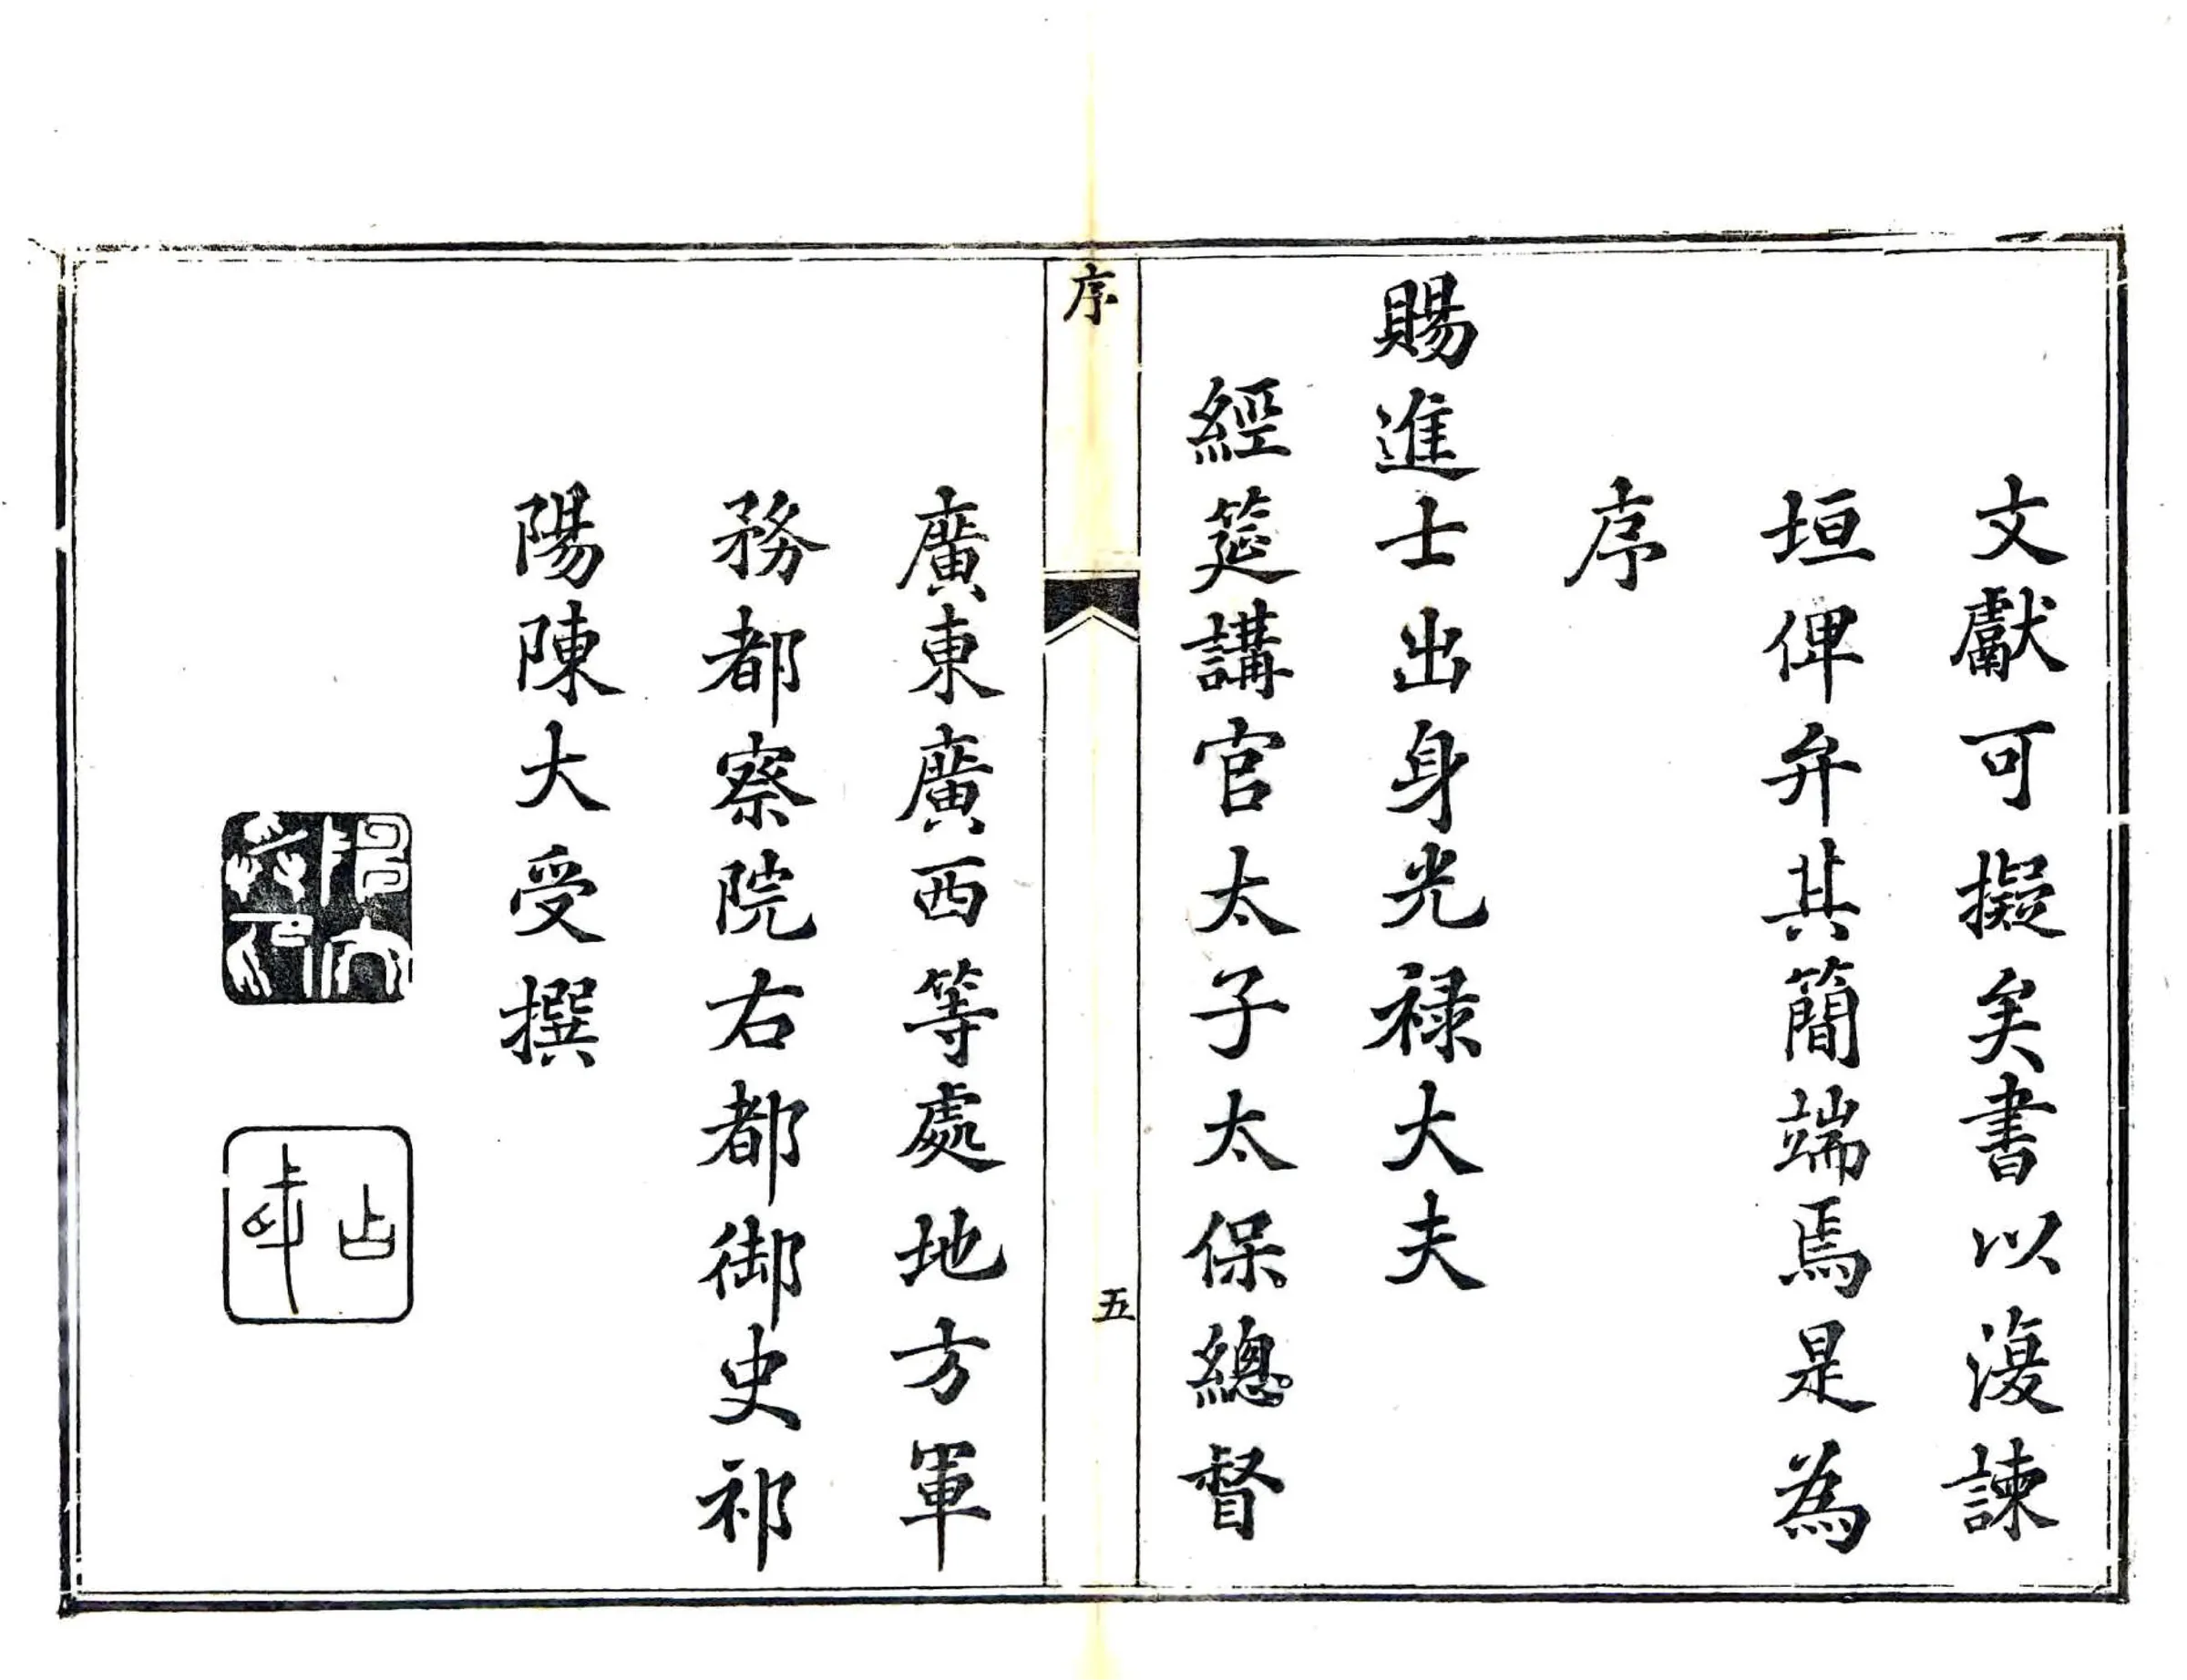 文獻可擬矣書以澓諫
垣俾弁其簡端焉是為
序
賜進士出身光禄大夫
經筵講官太子太保總督
序
五
廣東廣西等處地方軍
務都察院右都御史祁
陽陳大受撰
占